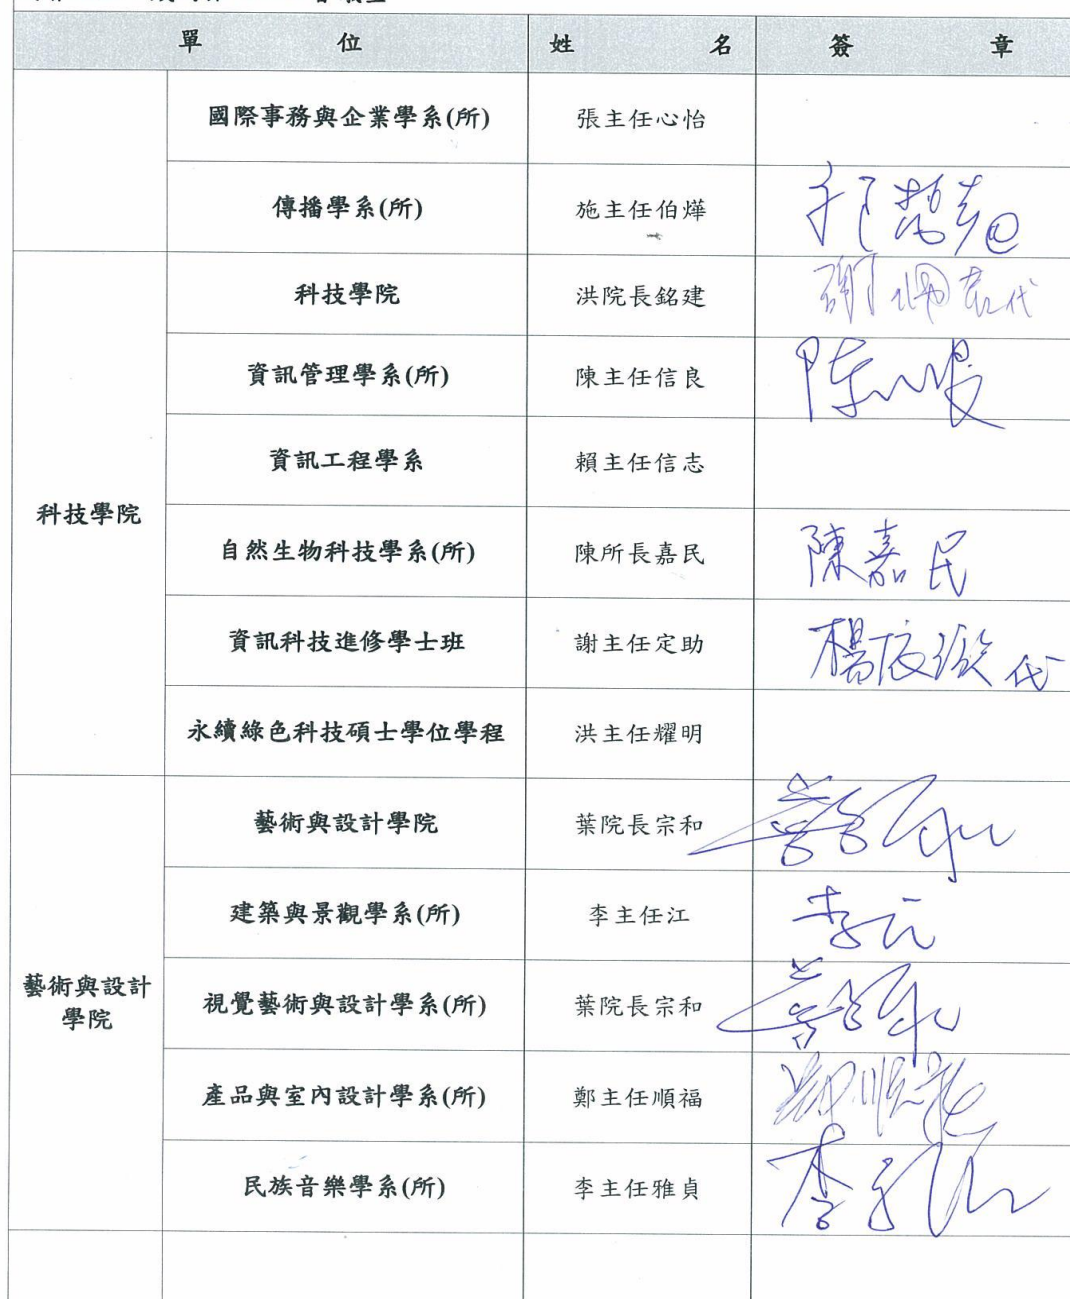 單 位 姓 名 簽 章
國際事務與企業學系(所) 張主任心怡
傳播學系(所) 施主任伯燁
科技學院 洪院長銘建 代
資訊管理學系(所) 陳主任信良
資訊工程學系 賴主任信志
科技學院
自然生物科技學系(所) 陳所長嘉民 陳嘉民
資訊科技進修學士班 謝主任定助 代
永續綠色科技碩士學位學程 洪主任耀明
藝術與設計學院 葉院長宗和
建築與景觀學系(所) 李主任江
藝術與設計
學院
視覺藝術與設計學系(所) 葉院長宗和
產品與室內設計學系(所) 鄭主任順福
民族音樂學系(所) 李主任雅貞